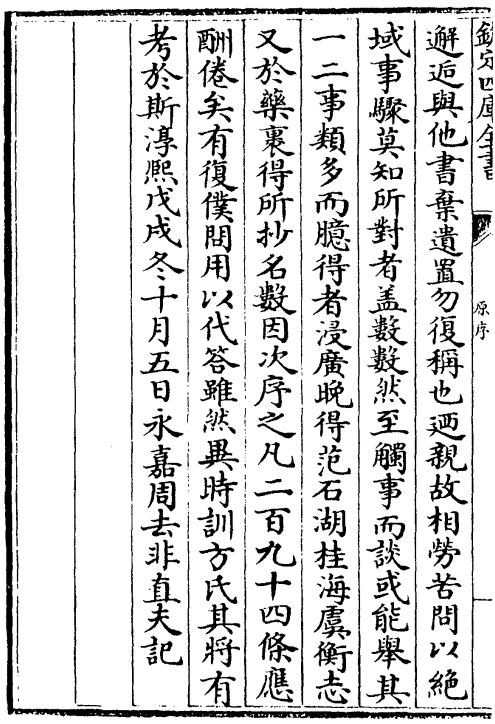 欽定四庫全書
原序
邂逅與他書棄遺置勿復稱也迺親故相勞苦問以絕
域事驟莫知所對者盖數數然至觸事而談或能舉其
一二事類多而臆得者浸廣晚得范石湖桂海虞衡志
又於藥裹得所抄名數因次序之凡二百九十四條應
酬倦矣有復僕問用以代答雖然異時訓方氏其將有
考於斯淳熙戊戌冬十月五日永嘉周去非直夫記